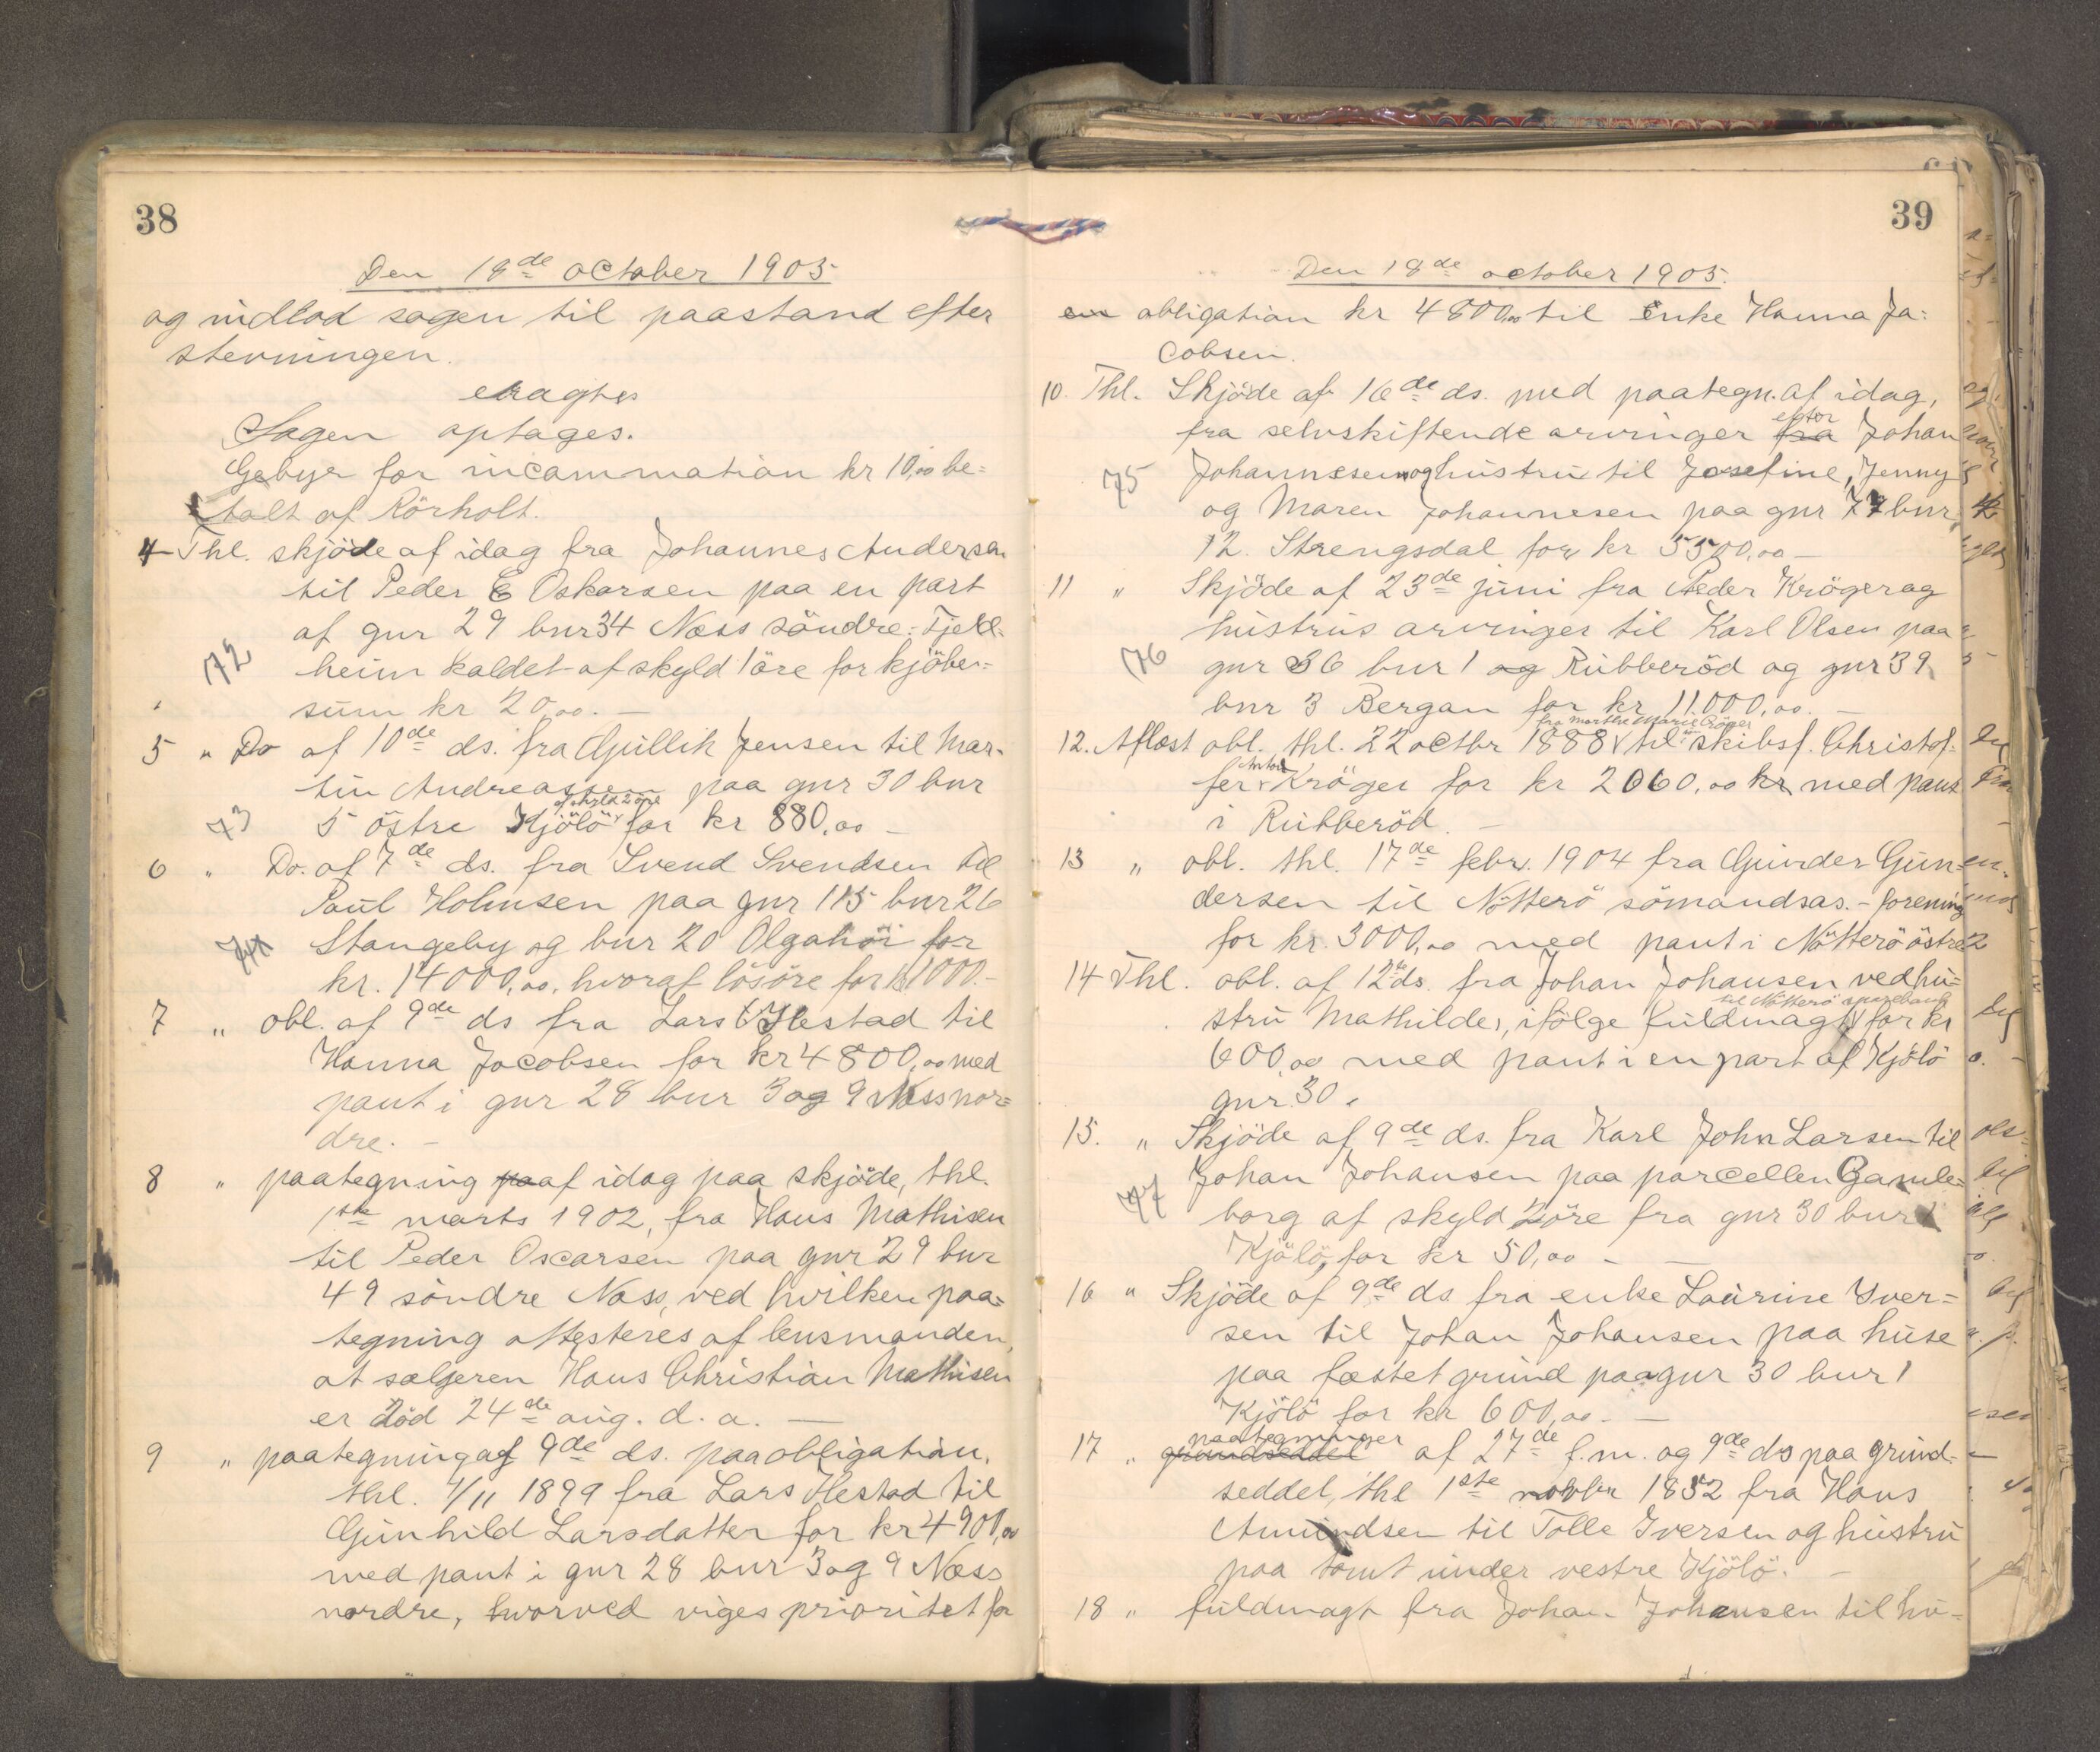 38
Den 18de october 1905
og indlod sagen til paastand efter
stevningen.
eragtes
Sagen optages.
Gebyr for incammination kr 10,00 be=
talt af Rörholt.
4 Thl. skjöde af idag fra Johannes Andersen
til Peder E Oskarsen paa en part
af gnr 29 bnr 34 Næss söndre: Fjell-
72 heim kaldet af skyld 1 öre for kjöbe=
sum kr 20,00. —
5 " Do af 10de ds. fra Gullik Jensen til Mar-
tin Andreassen paa gnr 30 bnr
af skyld 2 öre
73 5 östre Kjölö for kr 880,00 —
6 " Do. af 7de ds. fra Svend Svendsen til
Paul Holmsen paa gnr 115 bnr 26
74 Stangeby og bnr 20 Olgahöi for
kr. 14000,00, hvoraf lösöre for kr 1000.-
7 " obl. af 9de ds fra Lars Ilestad til
Hanna Jacobsen for kr 4800,00 med
pant i gnr 28 bnr 3 og 9 Næss nor=
dre. —
8 " paategning paa af idag paa skjöde, thl.
1ste marts 1902, fra Hans Mathisen
til Peder Oscarsen paa gnr 29 bnr
49 söndre Næss, ved hvilken paa=
tegning attesteres af lensmanden,
at sælgeren Hans Christian Mathisen
er död 24de aug. d. a. —
9 " paategning af 9de ds. paa obligation,
thl. 4/11 1899 fra Lars Ilestad til
Gunhild Larsdatter for kr 4900,00
med pant i gnr 28 bnr 3 og 9 Næss
nordre, hvorved viges prioritet for
39
Den 18de october 1905.
en obligation kr 4800,00 til Enke Hanna Ja=
cobsen.
10. Thl. Skjöde af 16de ds. med paategn. af idag,
efter
fra selvskiftende arvinger fra Johan
75 Johannesen og hustru til Josefine, Jenny
og Maren Johannesen paa gnr 77 bnr
12. Strengsdal for kr 5500,00 —
11 " Skjöde af 23de juni fra Peder Kröger og
hustrus arvinger til Karl Olsen paa
76 gnr 36 bnr 1 og Rubberöd og gnr 39
bnr 3 Bergan for kr 11.000,00. —
fra Marthe Marie Kröger
12. Aflæst obl. thl. 22 octbr 1888 til skibsf. Christof-
Anton
fer Kröger for kr 2060,00 kr med pant
i Rubberöd. —
13 " obl. thl. 17de febr. 1904 fra Gunder Gun=
dersen til Nötterö sömandsas.-forening
for kr. 3000,00 med pant i Nötterö östre
14 Thl. obl. af 12te ds. fra Johan Johansen ved hu=
til Nötterö sparebank
stru Mathilde, ifölge fuldmagt for kr
600,00 med pant i en part af Kjölö
gnr. 30.
15. " Skjöde af 9de ds. fra Karl John Larsen til
Johan Johansen paa parcellen Gamle=
77 borg af skyld 2 öre fra gnr 30 bnr 1
Kjölö, for kr 50,00 —
16 " Skjöde af 9de ds. fra enke Laurine Iver=
sen til Johan Johansen paa huse
paa fæstet grund paa gnr 30 bnr 1
Kjölö for kr 600,00. —
paategninger
17 " grundseddel af 27de f.m. og 9de ds paa grund-
seddel, thl 1ste novbr 1852 fra Hans
Amundsen til Tolle Iversen og hustru
paa tomt under vestre Kjölö. —
18 " fuldmagt fra Johan Johansen til hu=